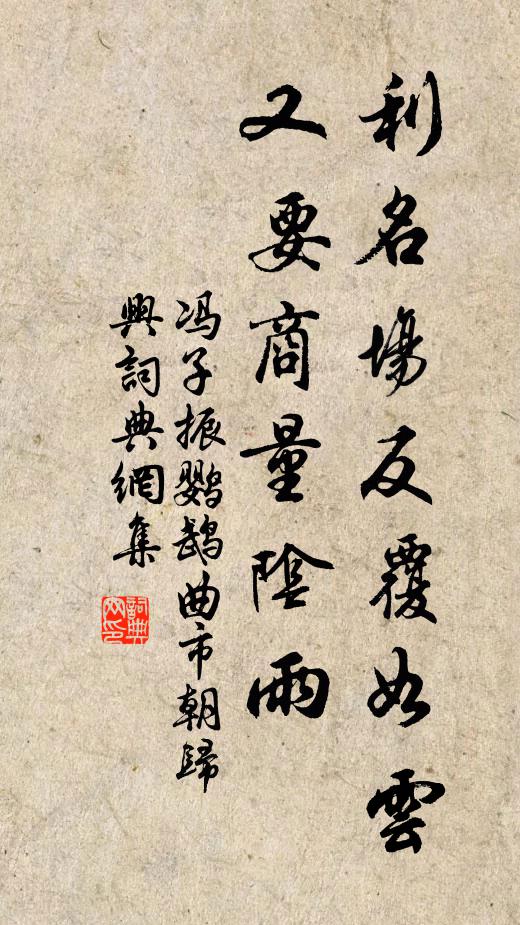 利名場反覆如雲
又要商量陰雨
冯子振鹦鹉曲市朝歸
興詞典網集
詞典网印